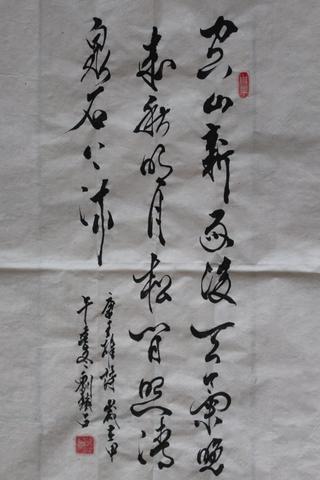 空山新雨後天氣晚
來秋明月松間照清
泉石上流
唐王維詩歲在甲
午